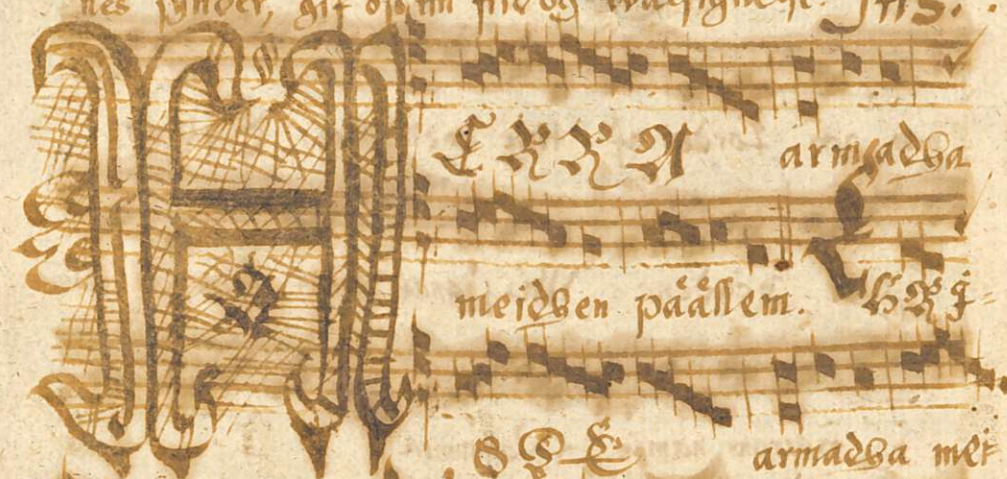 HERRA armadha
meidhen päällem. CHRI-
STE armadha mei